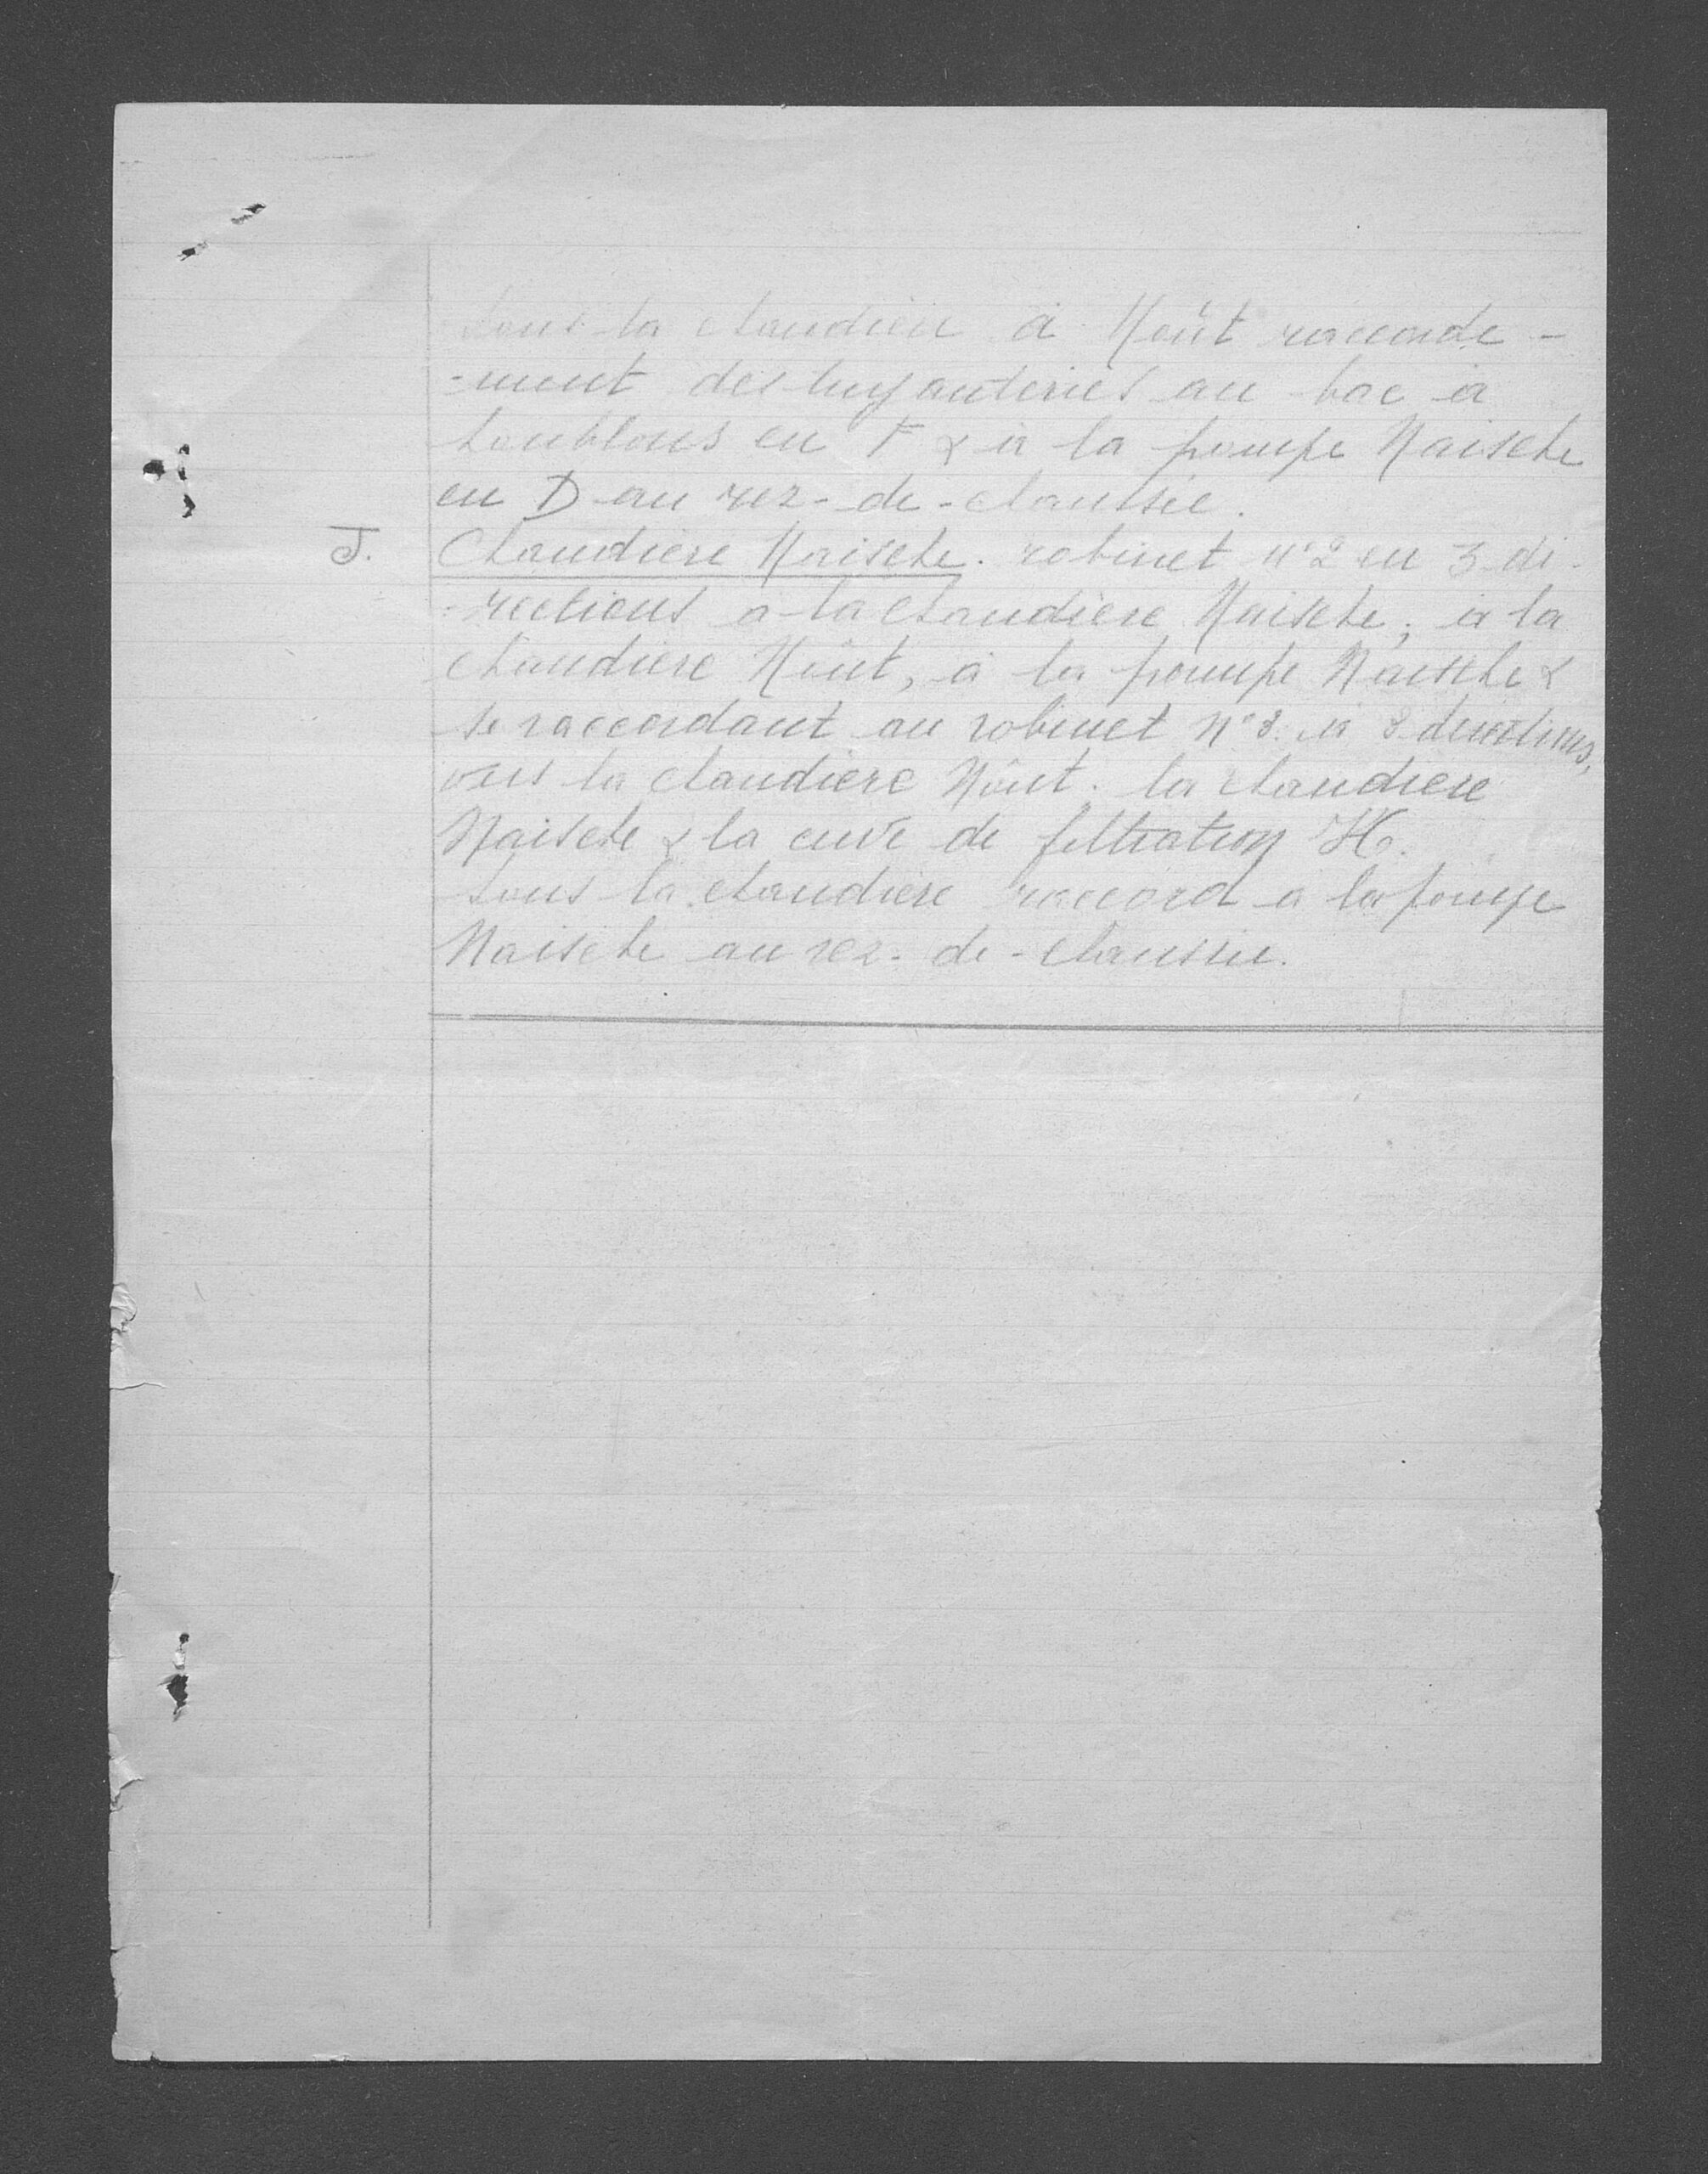 Sous la chaudière à Moût raccorde-
-ment des tuyauteries au bac à
houblons en F & à la pompe Maische
en D au rez-de-chaussée.
J. Chaudière Maische. robinet n°2 en 3 di-
-rections a la chaudière Maische, à la
chaudière Moût, à la pompe Maische &
se raccordant au robinet N°3. à 3 directions,
vers la chaudière Moût. la chaudière
Maische & la cuve de filtration H.
Sous la chaudière raccord a la pompe
Maische au rez-de-chaussée.